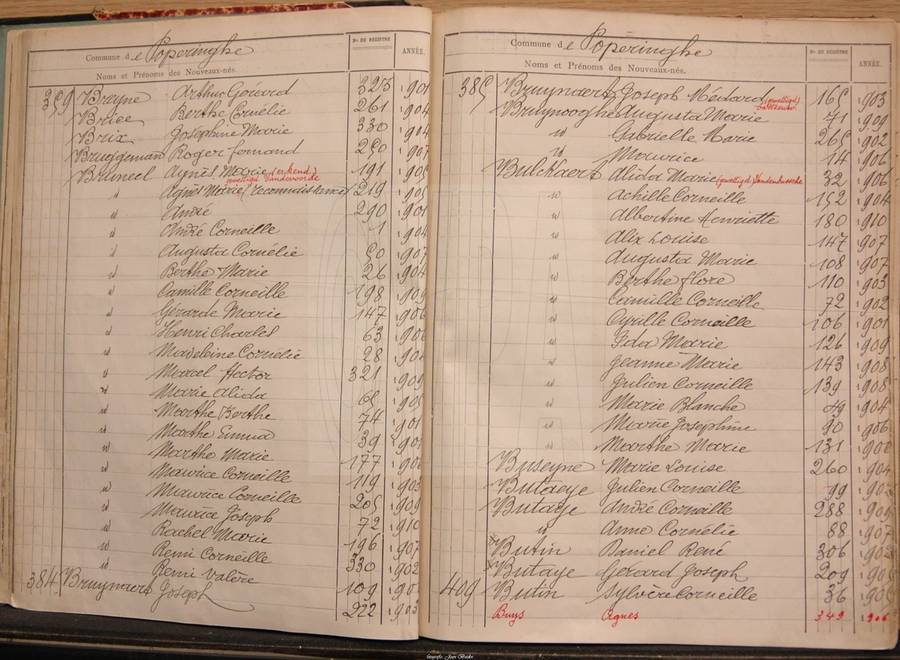 Commune de Poperinghe
Nos DE REGISTRE
ANNÉE.
Noms et Prénoms des Nouveaux-nés.
359 Breyne Arthur Gérard 325 1901
Brolee Berthe Cornélie 261 1904
Brix Joséphine Marie 330 1904
Bruggeman Roger fernand 250 1907
Bruneel Agnès Marie (erkend) 191 1905
gewettigd Vandevoorde
" Agnès Marie (reconnaissance) 219 1905
" André 290 1901
" André Corneille 1 1904
" Augusta Cornélie 50 1907
" Berthe Marie 26 1904
" Camille Corneille 198 1909
" Gérarde Marie 147 1906
" Henri Charles 63 1906
" Madeleine Cornélie 28 1904
" Marcel Hector 321
" Marie Alida 65 1909
" Marthe Berthe 74 1905
" Marthe Emma 39 1901
" Marthe Marie 177 1901
" Maurice Corneille 119 1906
" Maurice Corneille 205
" Maurice Joseph 72 1909
" Rachel Marie 196 1910
" Remi Corneille 330 1907
" Remi Valère 109 1902
384 Bruynaers Joseph 222 1903
Commune de Poperinghe
Nos DE REGISTRE
ANNÉE.
Noms et Prénoms des Nouveaux-nés.
385 Bruynaers Joseph Médard (gewettigd) 165 1903
Bruynooghe Augusta Marie 71 1909
" Gabrielle Marie 265 1902
" Maurice 14 1906
Bulckaert Alida Marie (gewettigd) Vandenbussche 32 1906
" Achille Corneille 152 1904
" Albertine Henriette 180 1910
" Alix Louise 147 1907
" Augusta Marie 108 1907
" Berthe flore 110 1903
" Camille Corneille 72 1902
" Cyrille Corneille 106 1901
" Ida Marie 126 1909
" Jeanne Marie 143 1908
" Julien Corneille 139 1908
" Marie Blanche 49 1904
" Marie Joséphine 90 1906
" Marthe Marie 131 1900
Buseyne Marie Louise 260 1904
Butaeye Julien Corneille 99
Butaye André Corneille 288 1909
" Anne Cornélie 88 1907
Butin Daniel René 306 1902
Butaye Gérard Joseph 209
409 Butin Sylvère Corneille 36 1908
Buys Agnes 349 1906